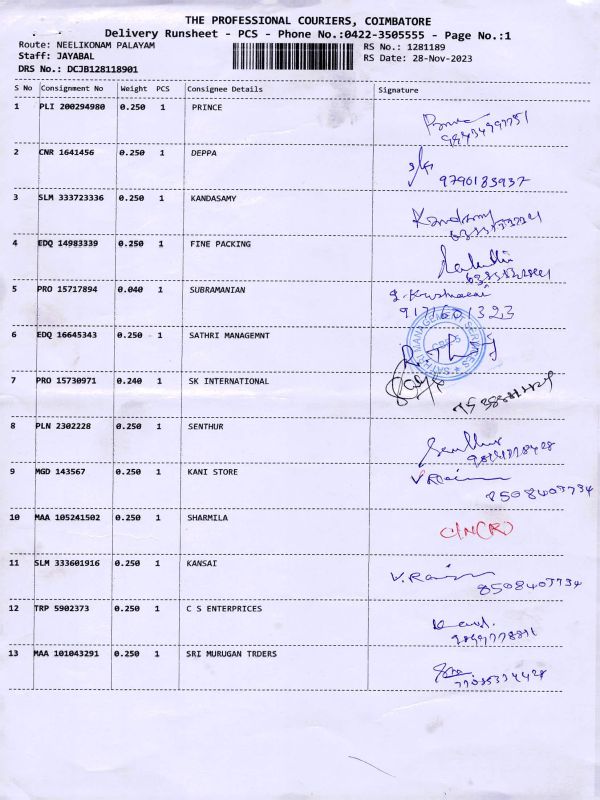 THE PROFESSIONAL COURIERS, COIMBATORE
Delivery Runsheet - PCS - Phone No.:0422-3505555 - Page No.:1
Route: NEELIKONAM PALAYAM RS No.: 1281189
Staff: JAYABAL RS Date: 28-Nov-2023
DRS No.: DCJB128118901
S No Consignment No Weight PCS Consignee Details Signature
1 PLI 200294980 0.250 1 PRINCE
2 CNR 1641456 0.250 1 DEPPA
9790183937
3 SLM 333723336 0.250 1 KANDASAMY
Kandasamy
4 EDQ 14983339 0.250 1 FINE PACKING
5 PRO 15717894 0.040 1 SUBRAMANIAN
9171601323
6 EDQ 16645343 0.250 1 SATHRI MANAGEMNT
SATHRI MANAGEMENT SERVICES
7 PRO 15730971 0.240 1 SK INTERNATIONAL
8 PLN 2302228 0.250 1 SENTHUR
9 MGD 143567 0.250 1 KANI STORE
8508403734
10 MAA 105241502 0.250 1 SHARMILA
C/N(R)
11 SLM 333601916 0.250 1 KANSAI
8508403734
12 TRP 5902373 0.250 1 C S ENTERPRICES
13 MAA 101043291 0.250 1 SRI MURUGAN TRDERS